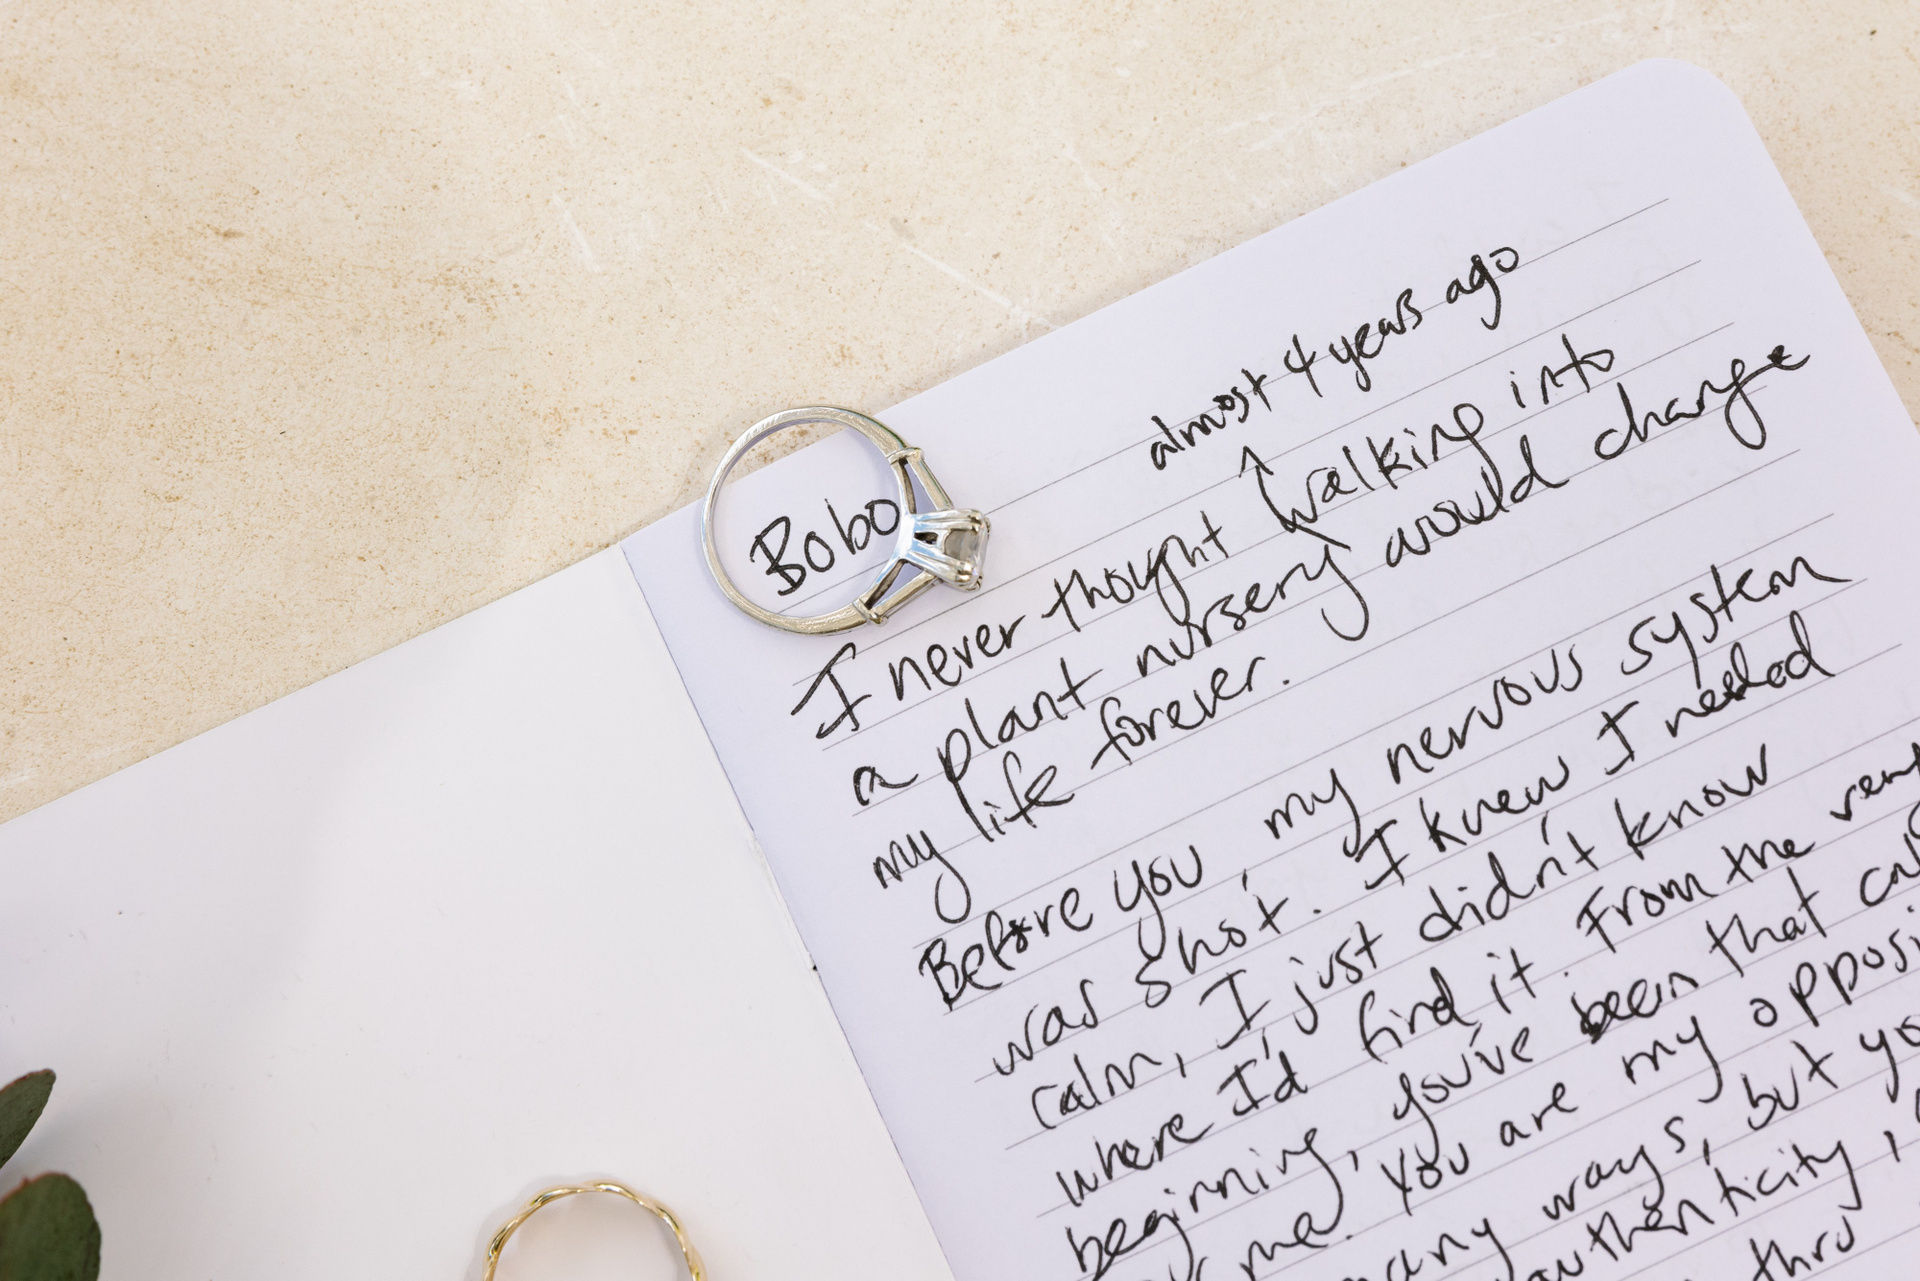 Bobo
almost 4 years ago
I never thought ^ walking into
a plant nursery would change
my life forever.
Before you, my nervous system
was shot. I knew I needed
calm, I just didn't know
where I'd find it. From the
beginning, you've been that
me. You are my
many ways, but
authenticity,
thru